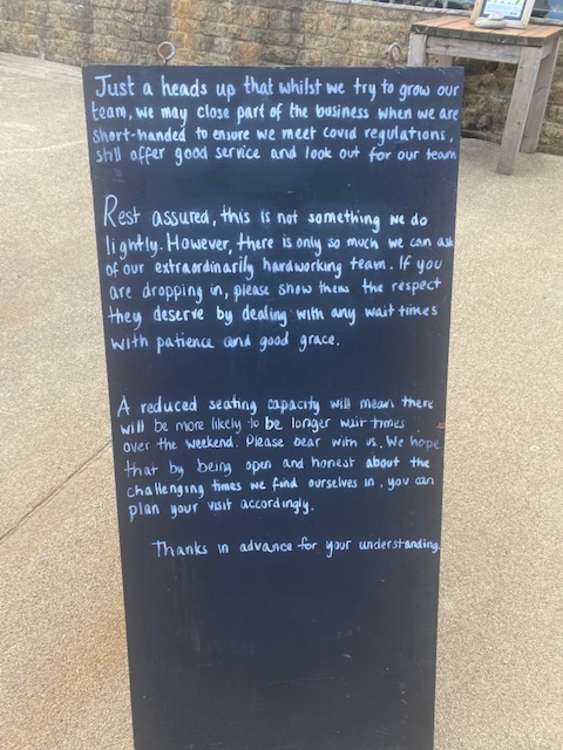 Just a heads up that whilst we try to grow our
team, we may close part of the business when we are
short-handed to ensure we meet covid regulations,
still offer good service and look out for our team
Rest assured, this is not something we do
lightly. However, there is only so much we can ask
of our extraordinarily hardworking team. If you
are dropping in, please show them the respect
they deserve by dealing with any wait times
with patience and good grace.
A reduced seating capacity will mean there
will be more likely to be longer wait times
over the weekend. Please bear with us. We hope
that by being open and honest about the
challenging times we find ourselves in, you can
plan your visit accordingly.
Thanks in advance for your understanding.